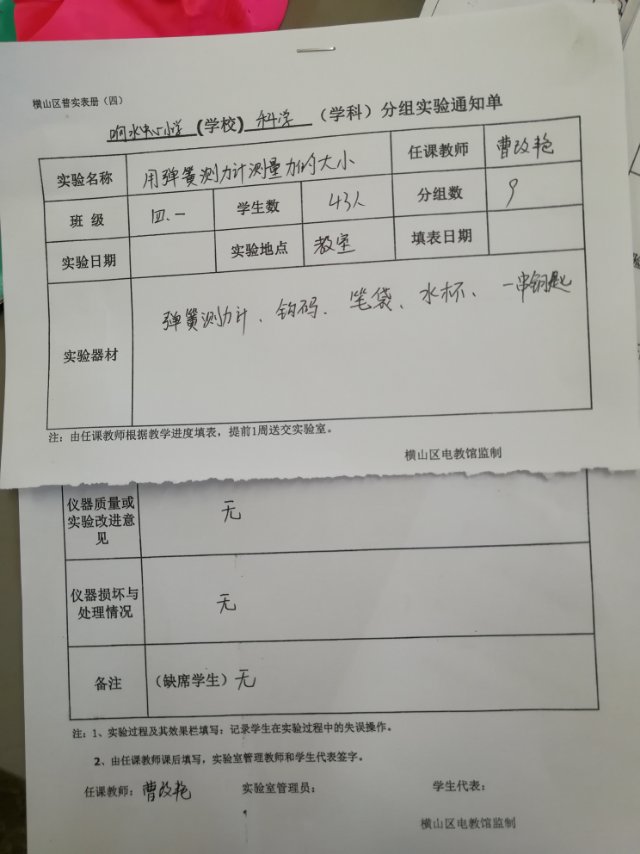 横山区普实表册（四）
响水中心小学（学校）科学（学科）分组实验通知单
实验名称 用弹簧测力计测量力的大小 任课教师 曹改艳
班 级 四.一 学生数 43人 分组数 9
实验日期 实验地点 教室 填表日期
实验器材 弹簧测力计、钩码、笔袋、水杯、一串钥匙
注：由任课教师根据教学进度填表，提前1周送交实验室。
横山区电教馆监制
仪器质量或
实验改进意
见 无
仪器损坏与
处理情况 无
备注 （缺席学生）无
注：1、实验过程及其效果栏填写：记录学生在实验过程中的失误操作。
2、由任课教师课后填写，实验室管理教师和学生代表签字。
任课教师：曹改艳 实验室管理员： 学生代表：
横山区电教馆监制